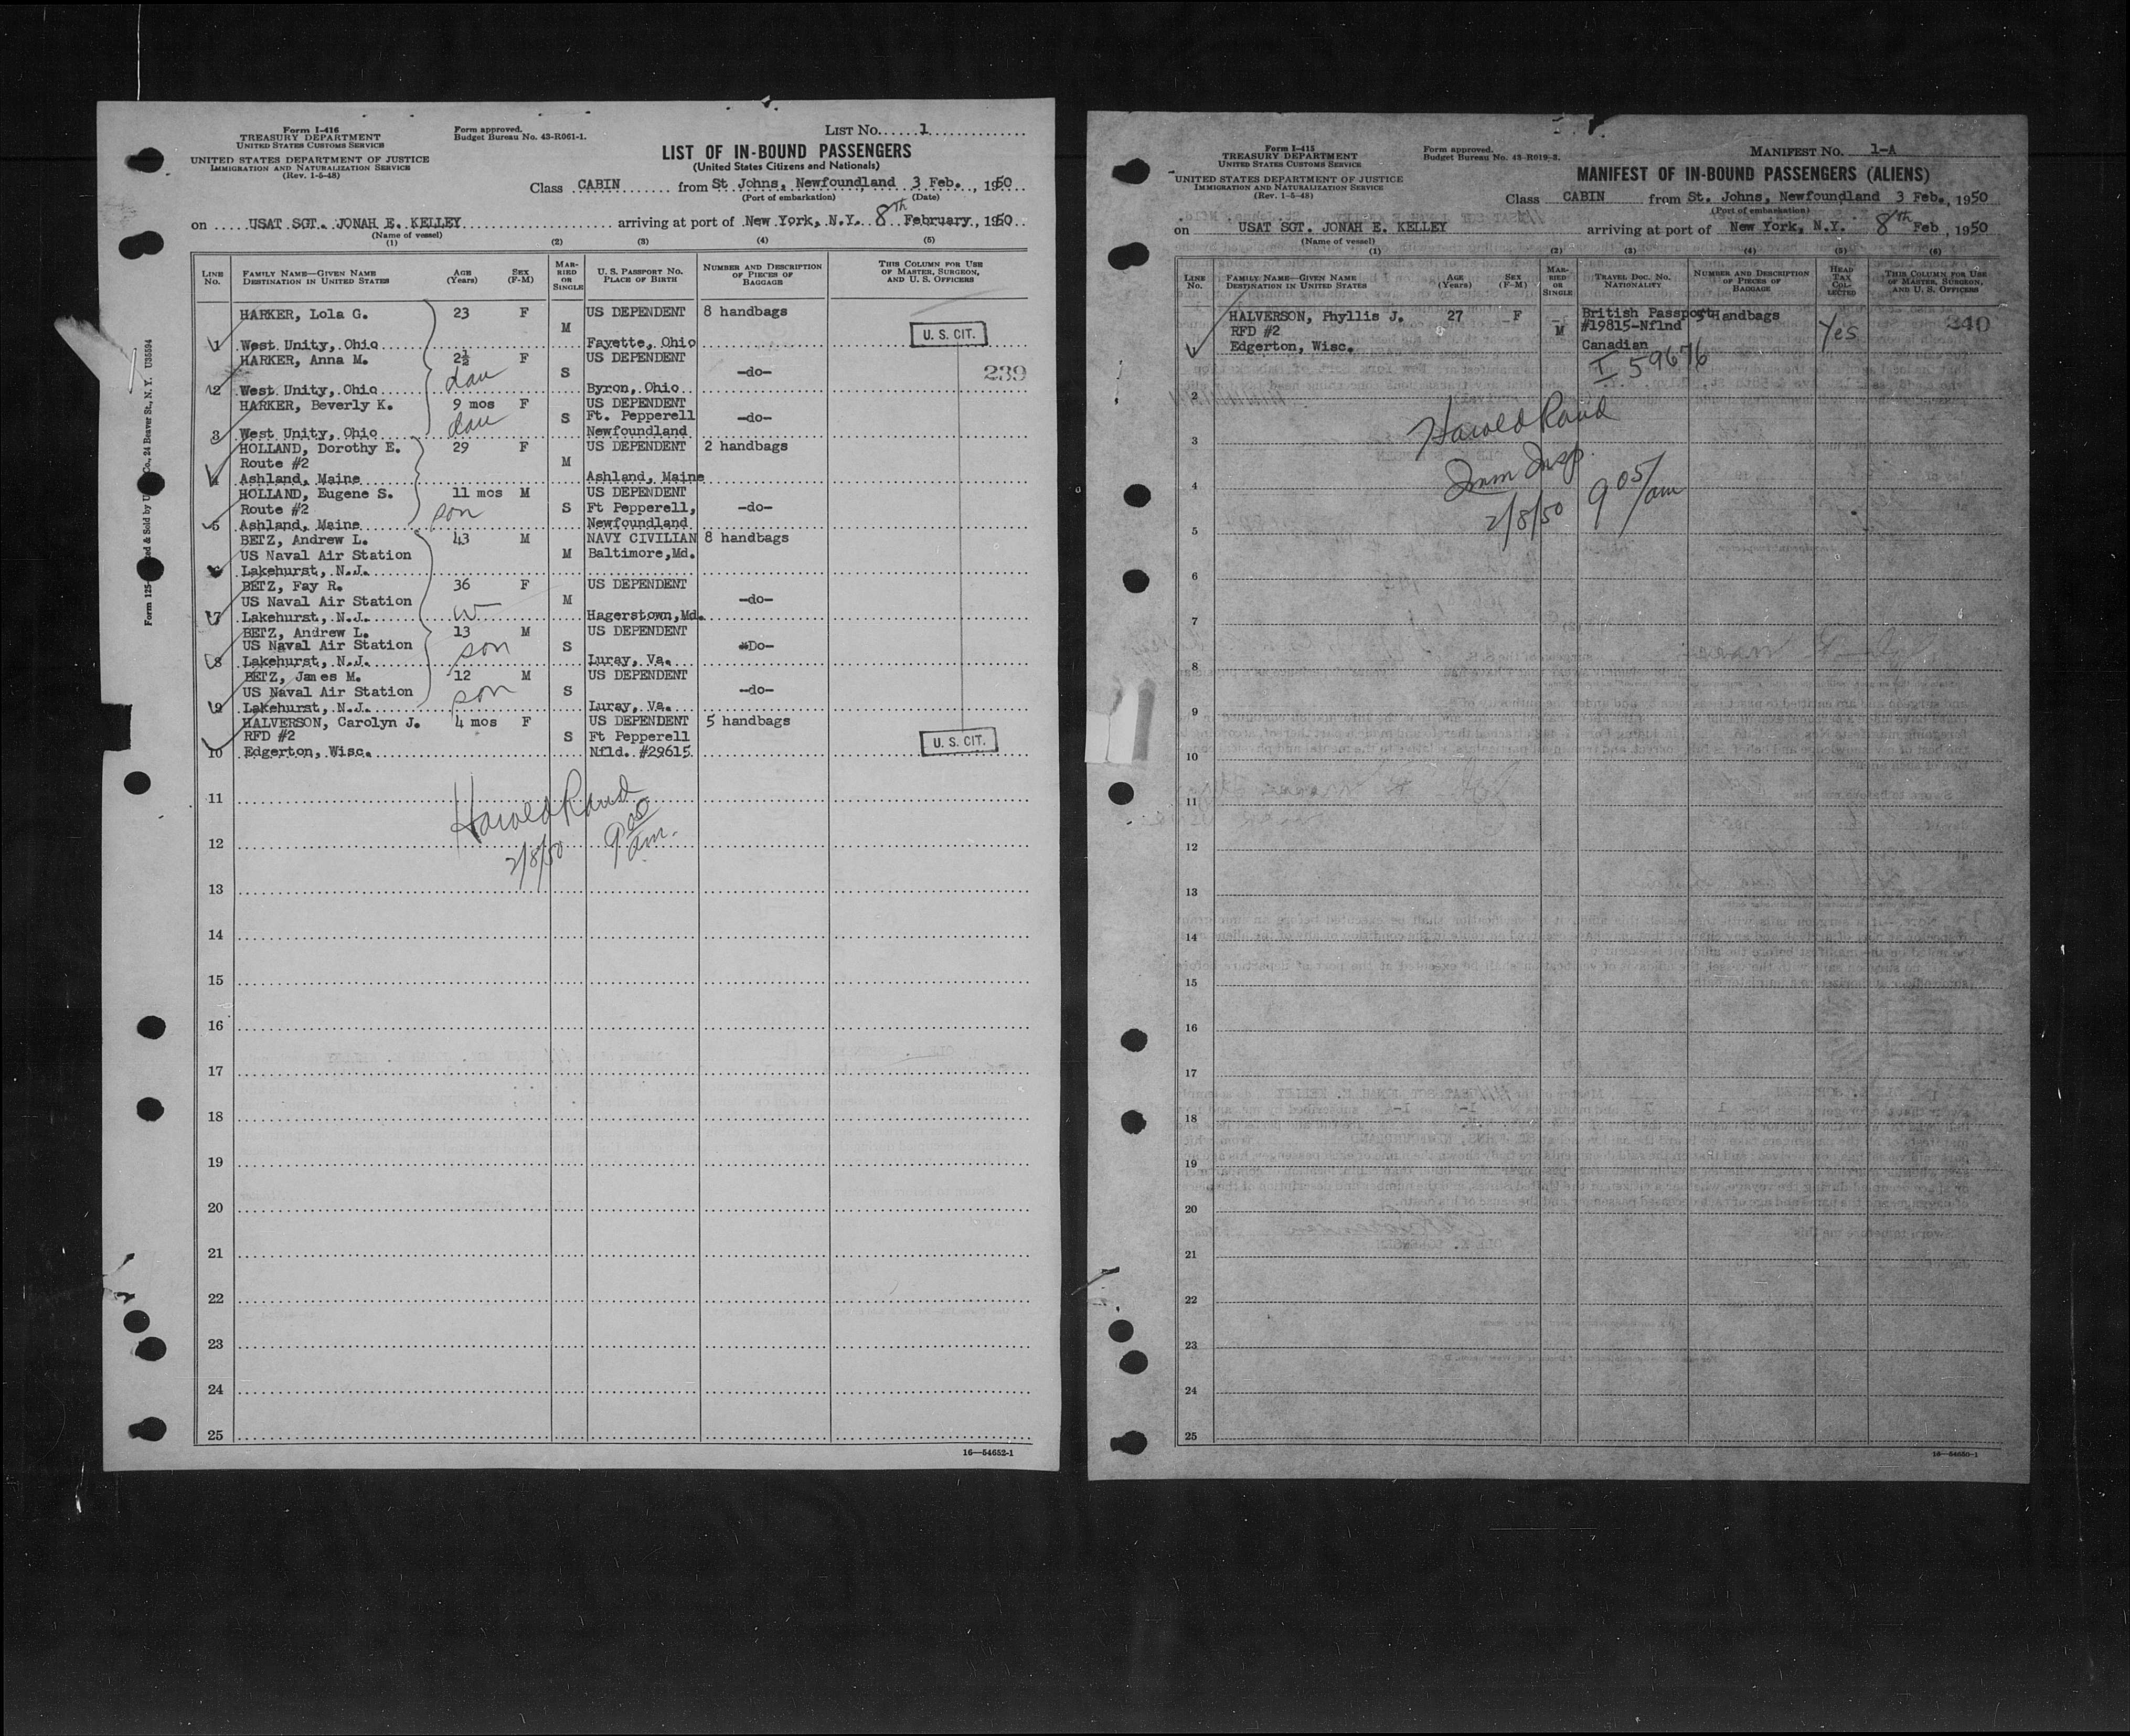 Form I-416
TREASURY DEPARTMENT
UNITED STATES CUSTOMS SERVICE
UNITED STATES DEPARTMENT OF JUSTICE
IMMIGRATION AND NATURALIZATION SERVICE
(Rev. 1-5-48)
Form approved.
Budget Bureau No. 43-R061-1.
LIST NO. 1
LIST OF IN-BOUND PASSENGERS
(United States Citizens and Nationals)
Class CABIN from St Johns, Newfoundland 3 Feb., 1950
(Port of embarkation) (Date)
on USAT SGT. JONAH E. KELLEY arriving at port of New York, N.Y. 8th February, 1950
(Name of vessel)
(1) (2) (3) (4) (5)
LINE No. FAMILY NAME—GIVEN NAME DESTINATION IN UNITED STATES AGE (Years) SEX (F-M) MARRIED OR SINGLE U. S. PASSPORT NO. PLACE OF BIRTH NUMBER AND DESCRIPTION OF PIECES OF BAGGAGE THIS COLUMN FOR USE OF MASTER, SURGEON, AND U. S. OFFICERS
HARKER, Lola G. 23 F US DEPENDENT 8 handbags
M U. S. CIT.
1 West Unity, Ohio Fayette, Ohio
HARKER, Anna M. 2½ F US DEPENDENT
dau S -do- 239
2 West Unity, Ohio Byron, Ohio
HARKER, Beverly K. 9 mos F US DEPENDENT
dau S Ft. Pepperell -do-
3 West Unity, Ohio Newfoundland
HOLLAND, Dorothy E. 29 F US DEPENDENT 2 handbags
Route #2 M
4 Ashland, Maine Ashland, Maine
HOLLAND, Eugene S. 11 mos M US DEPENDENT
Route #2 son S Ft Pepperell, -do-
5 Ashland, Maine Newfoundland
BETZ, Andrew L. 43 M NAVY CIVILIAN 8 handbags
US Naval Air Station M Baltimore,Md.
6 Lakehurst, N.J.
BETZ, Fay R. 36 F US DEPENDENT
US Naval Air Station M -do-
7 Lakehurst, N.J. W Hagerstown,Md.
BETZ, Andrew L. 13 M US DEPENDENT
US Naval Air Station son S -Do-
8 Lakehurst, N.J. Luray, Va.
BETZ, James M. 12 M US DEPENDENT
US Naval Air Station son S -do-
9 Lakehurst, N.J. Luray, Va.
HALVERSON, Carolyn J. 4 mos F US DEPENDENT 5 handbags
RFD #2 S Ft Pepperell U. S. CIT.
10 Edgerton, Wisc. Nfld. #29615
11
Harold Rand
12
2/8/50 9 00 am.
13
14
15
16
17
18
19
20
21
22
23
24
25
16—54652-1
Co., 24 Beaver St., N. Y. U35594
Form I-415
TREASURY DEPARTMENT
UNITED STATES CUSTOMS SERVICE
UNITED STATES DEPARTMENT OF JUSTICE
IMMIGRATION AND NATURALIZATION SERVICE
(Rev. 1-5-48)
Form approved.
Budget Bureau No. 43-R019-3.
MANIFEST NO. 1-A
MANIFEST OF IN-BOUND PASSENGERS (ALIENS)
Class CABIN from St. Johns, Newfoundland 3 Feb., 1950
(Port of embarkation)
on USAT SGT. JONAH E. KELLEY arriving at port of New York, N.Y. 8th Feb, 1950
(Name of vessel)
(1) (2) (3) (4) (5) (6)
LINE No. FAMILY NAME—GIVEN NAME DESTINATION IN UNITED STATES AGE (Years) SEX (F-M) MARRIED OR SINGLE TRAVEL DOC. NO. NATIONALITY NUMBER AND DESCRIPTION OF PIECES OF BAGGAGE HEAD TAX COLLECTED THIS COLUMN FOR USE OF MASTER, SURGEON, AND U. S. OFFICERS
HALVERSON, Phyllis J. 27 F British Passport 5 Handbags 240
RFD #2 M #19815-Nflnd Yes
Edgerton, Wisc. Canadian
I 59676
2
Harold Rand
3
Imm Insp.
4
2/8/50 9 05/am
5
6
7
8
9
10
11
12
13
14
15
16
17
18
19
20
21
22
23
24
25
16—54650-1